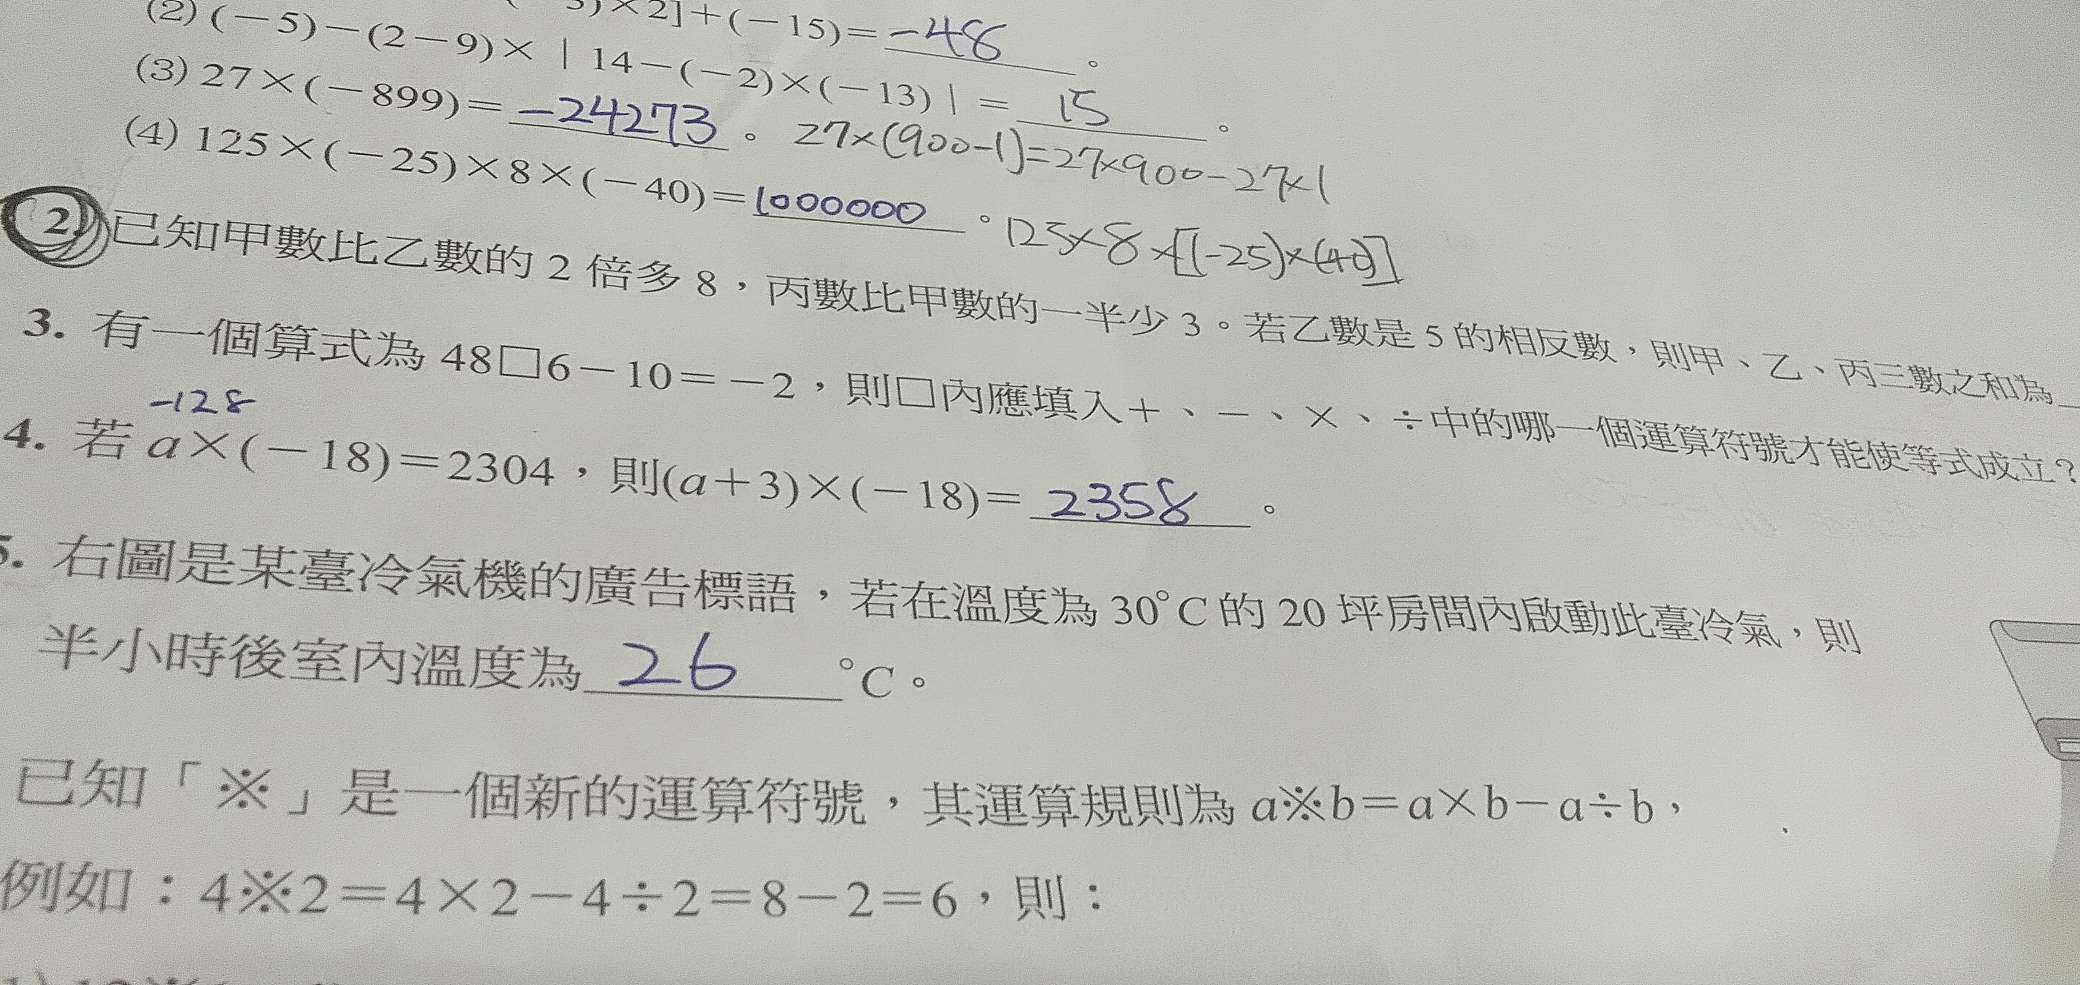 3)×2]+(-15)=-48。
(2)(-5)-(2-9)×|14-(-2)×(-13)|=15。
(3)27×(-899)=-24273。27×(900-1)=27×900-27×1
(4)125×(-25)×8×(-40)=1000000。125×8×[(-25)×(40)]
2.已知甲數比乙數的2倍多8,丙數比甲數的一半少3。若乙數是5的相反數,則甲、乙、丙三數之和為
3. 有一個算式為48□6-10=-2,則□內應填入+、-、×、÷中的哪一個運算符號才能使等式成立?
-128
4. 若a×(-18)=2304,則(a+3)×(-18)=2358。
5. 右圖是某臺冷氣機的廣告標語,若在溫度為30°C的20坪房間內啟動此臺冷氣,則
半小時後室內溫度為26°C。
已知「※」是一個新的運算符號,其運算規則為a※b=a×b-a÷b,
例如:4※2=4×2-4÷2=8-2=6,則: